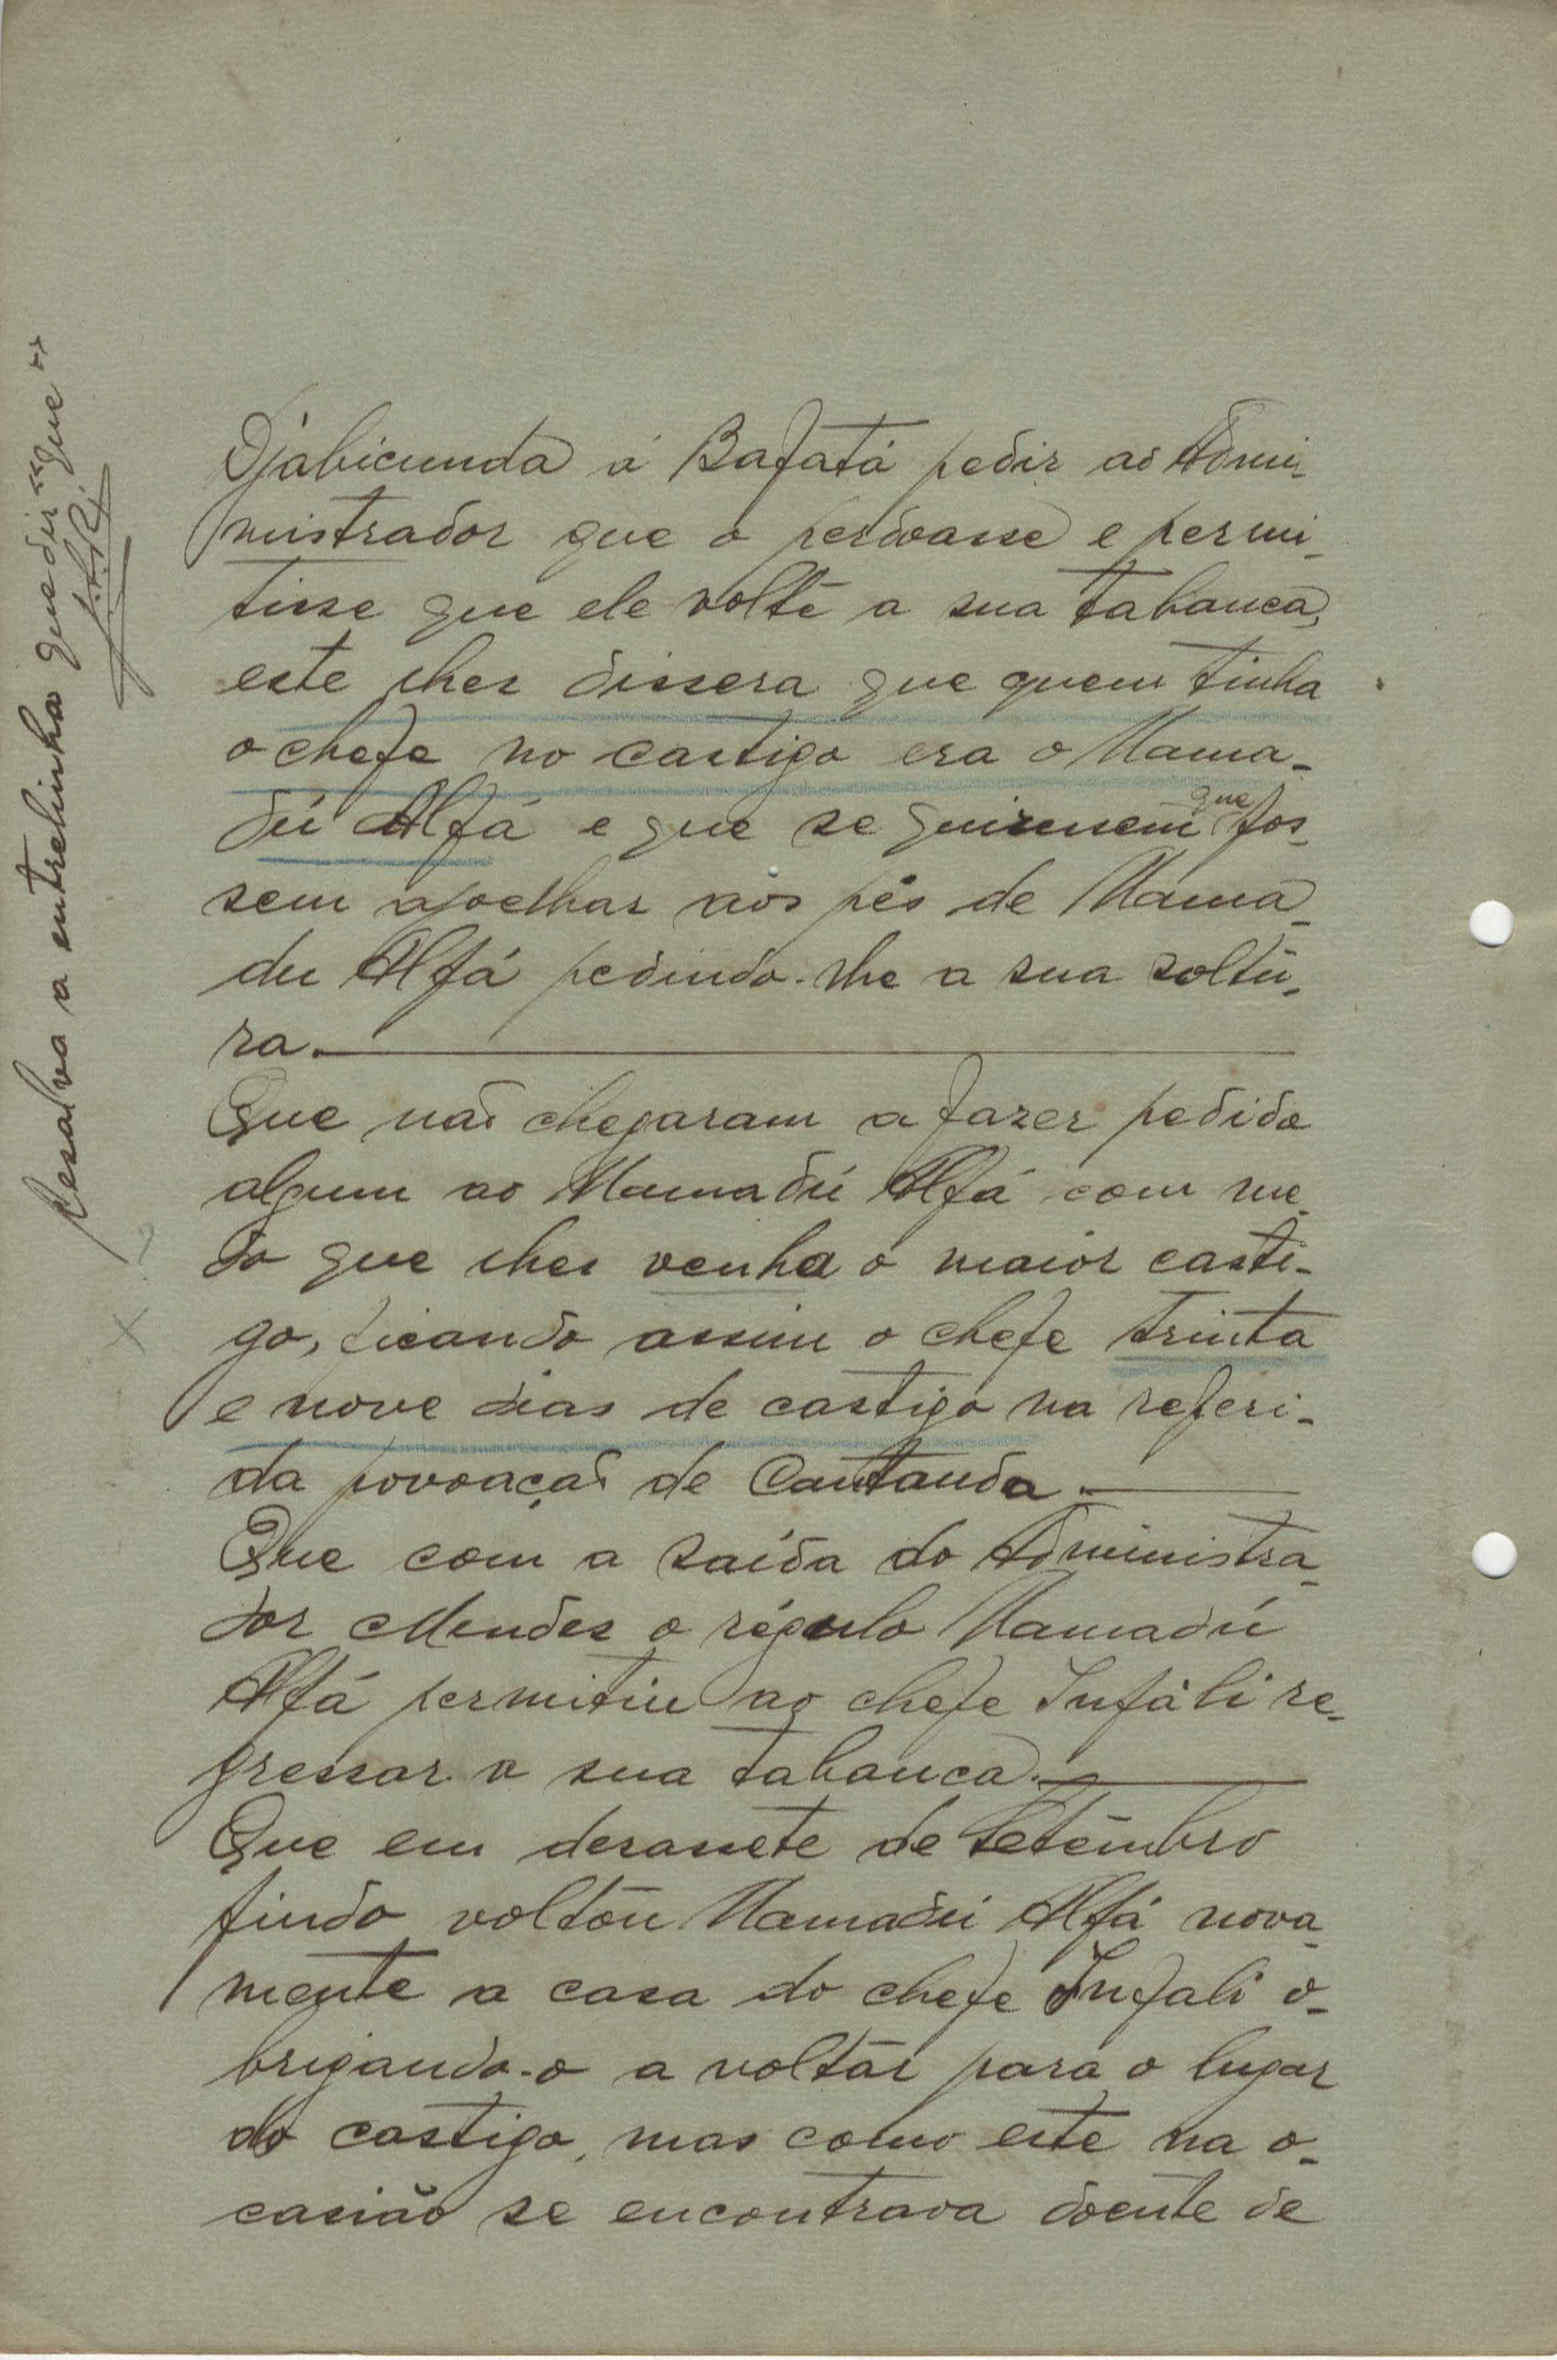 Djabicunda á Bafatá pedir ao Admi-
nistrador que o perdoasse e permi-
tisse que ele volte a sua tabanca,
este lhes dissera que quem tinha
o chefe no castigo era o Mama-
dú Alfá e que se quizessem que fos-
sem ajoelhar aos pés de Mama-
du Alfá pedindo-lhe a sua soltu-
ra.
Que não chegaram a fazer pedido
algum ao Mamadú Alfá com me-
do que lhes venha o maior casti-
go, ficando assim o chefe trinta
e nove dias de castigo na referi-
da povoação de Cantauda.
Que com a saída do Administra-
dor Mendes o régulo Mamadú
Alfá permitiu ao chefe Infáli re-
gressar a sua tabanca.
Que em desassete de Setembro
findo voltou Mamadú Alfá nova-
mente a casa do chefe Infali o-
brigando-o a voltar para o lugar
do castigo, mas como este na o-
casião se encontrava doente de
Resalva a entrelinha que diz "que"